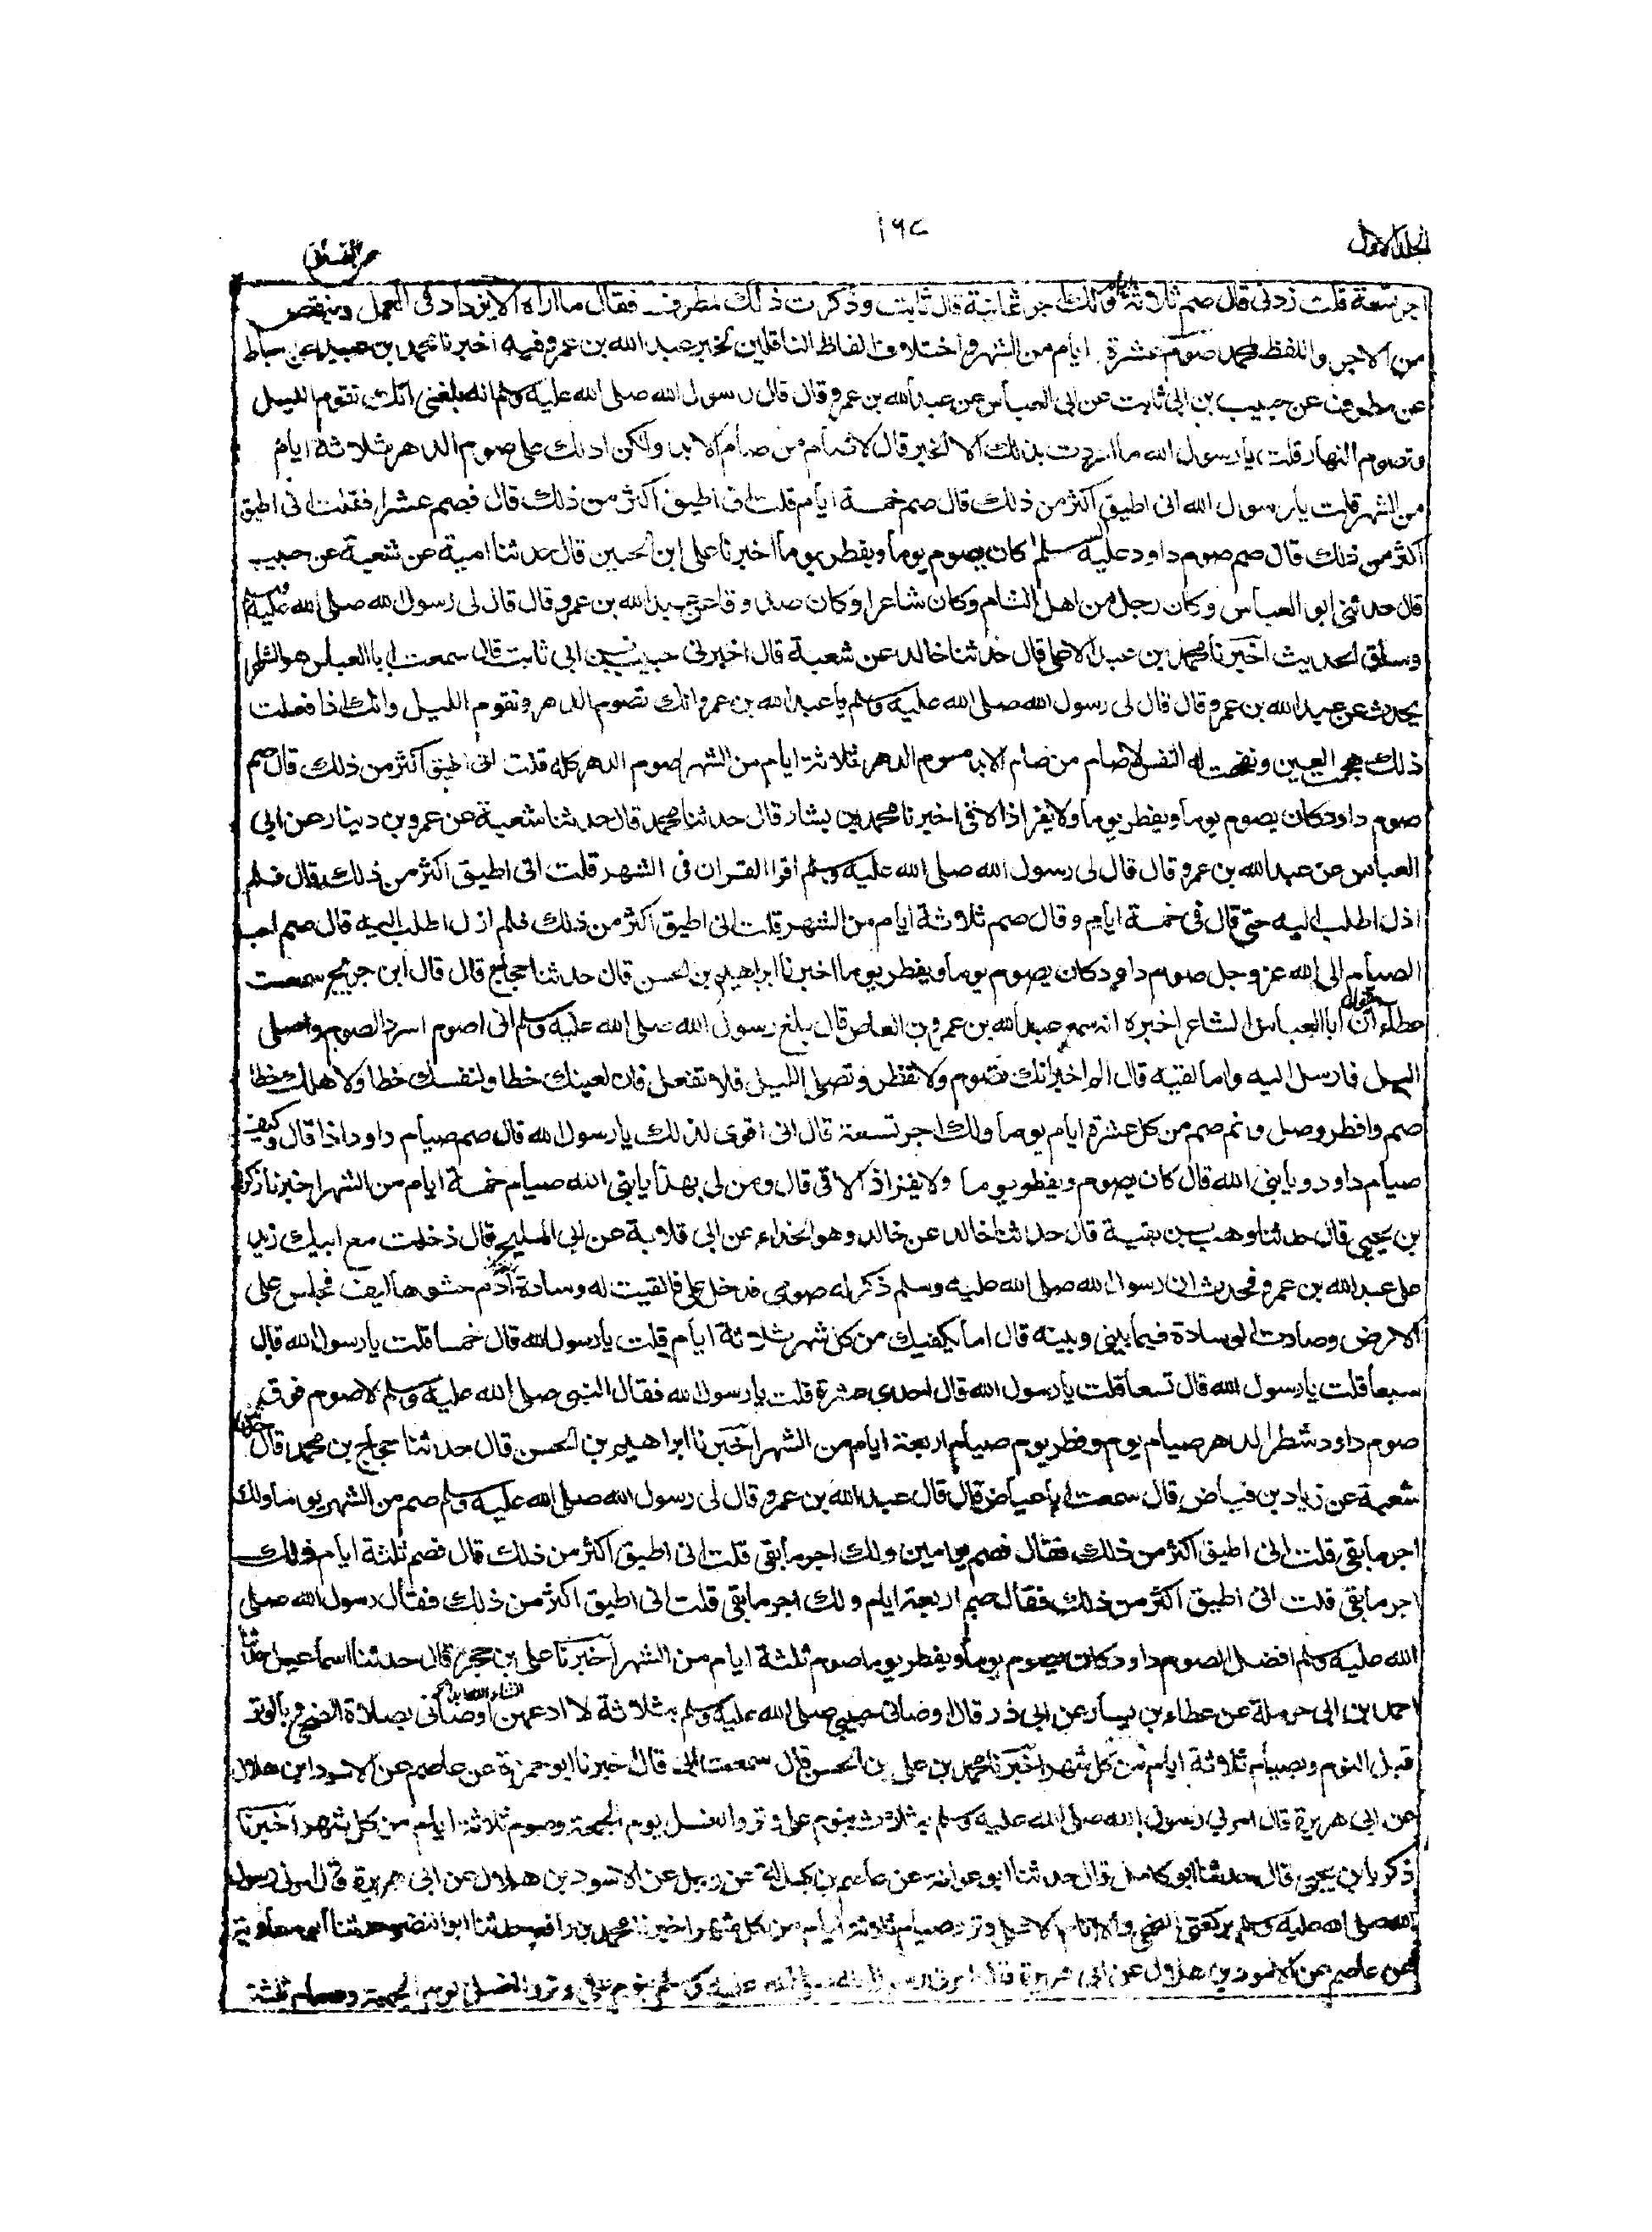 الجلد الاول
١٩٤
اجر تسعة قلت زدنى قال صم ثلاثة ايام ولك اجر ثمانية قال ثابت وذكرت ذلك لمطرف فقال ما اراه الا يزداد فى العمل وينقص
من الاجر واللفظ لمحمد صوم عشرة ايام من الشهر واختلاف الفاظ الناقلين لخبر عبد الله بن عمرو فيه اخبرنا محمد بن عبيد عن سباط
عن مطرف عن حبيب بن ابى ثابت عن ابى العباس عن عبد الله بن عمرو قال قال رسول الله صلى الله عليه وسلم انه بلغنى انك تقوم الليل
وتصوم النهار قلت يا رسول الله ما اردت بذلك الا الخير قال لا صام من صام الابد ولكن ادلك على صوم الدهر ثلاثة ايام
من الشهر قلت يا رسول الله انى اطيق اكثر من ذلك قال صم خمسة ايام قلت انى اطيق اكثر من ذلك قال فصم عشرا فقلت انى اطيق
اكثر من ذلك قال صم صوم داود عليه السلم كان يصوم يوما ويفطر يوما اخبرنا على ابن الحسين قال حدثنا امية عن شعبة عن حبيب
قال حدثنى ابو العباس وكان رجل من اهل الشام وكان شاعرا وكان صدوقا عن عبد الله بن عمرو قال قال لى رسول الله صلى الله عليه وسلم
وساق الحديث اخبرنا محمد بن عبد الاعلى قال حدثنا خالد عن شعبة قال اخبرنى حبيب بن ابى ثابت قال سمعت ابا العباس هو الشاعر
يحدث عن عبد الله بن عمرو قال قال لى رسول الله صلى الله عليه وسلم يا عبد الله بن عمرو انك تصوم الدهر وتقوم الليل وانك اذا فعلت
ذلك هجمت العين ونفهت له النفس لا صام من صام الابد صوم الدهر ثلاثة ايام من الشهر صوم الدهر كله قلت انى اطيق اكثر من ذلك قال صم
صوم داود كان يصوم يوما ويفطر يوما ولا يفر اذا لاقى اخبرنا محمد بن بشار قال حدثنا محمد قال حدثنا شعبة عن عمرو بن دينار عن ابى
العباس عن عبد الله بن عمرو قال قال لى رسول الله صلى الله عليه وسلم اقرا القران فى الشهر قلت انى اطيق اكثر من ذلك قال فلم
ازل اطلب اليه حتى قال فى خمسة ايام وقال صم ثلاثة ايام من الشهر قلت انى اطيق اكثر من ذلك فلم ازل اطلب اليه قال صم احب
الصيام الى الله عز وجل صوم داود كان يصوم يوما ويفطر يوما اخبرنا ابراهيم بن الحسن قال حدثنا حجاج قال قال ابن جريج سمعت
عطاء يقول ان ابا العباس الشاعر اخبره انه سمع عبد الله بن عمرو بن العاص قال بلغ رسول الله صلى الله عليه وسلم انى اصوم اسرد الصوم واصلى
الليل فارسل اليه واما لقيه قال الم اخبر انك تصوم ولا تفطر وتصلى الليل فلا تفعل فان لعينك حظا ولنفسك حظا ولاهلك حظا
صم وافطر وصل ونم صم من كل عشرة ايام يوما ولك اجر تسعة قال انى اقوى لذلك يا رسول الله قال صم صيام داود اذا قال وكيف
صيام داود يا نبى الله قال كان يصوم ويفطر يوما ولا يفر اذا لاقى قال ومن لى بهذا يا نبى الله صيام خمسة ايام من الشهر اخبرنا زكريا
بن يحيى قال حدثنا وهب بن بقية قال حدثنا خالد عن خالد وهو الحذاء عن ابى قلابة عن ابى المليح قال دخلت مع ابيك زيد
على عبد الله بن عمرو فحدث ان رسول الله صلى الله عليه وسلم ذكر له صومى فدخل على فالقيت له وسادة ادم حشوها ليف فجلس على
الارض وصارت الوسادة فيما بينى وبينه قال اما يكفيك من كل شهر ثلاثة ايام قلت يا رسول الله قال خمسا قلت يا رسول الله قال
سبعا قلت يا رسول الله قال تسعا قلت يا رسول الله قال احدى عشرة قلت يا رسول الله فقال النبى صلى الله عليه وسلم لا صوم فوق
صوم داود شطر الدهر صيام يوم وفطر يوم صيام اربعة ايام من الشهر اخبرنا ابراهيم بن الحسن قال حدثنا حجاج بن محمد قال حدثنا
شعبة عن زياد بن فياض قال سمعت ابا عياض قال قال عبد الله بن عمرو قال لى رسول الله صلى الله عليه وسلم صم من الشهر يوما ولك
اجر ما بقى قلت انى اطيق اكثر من ذلك فقال فصم يومين ولك اجر ما بقى قلت انى اطيق اكثر من ذلك قال فصم ثلثة ايام ولك
اجر ما بقى قلت انى اطيق اكثر من ذلك فقال صم اربعة ايام ولك اجر ما بقى قلت انى اطيق اكثر من ذلك فقال رسول الله صلى
الله عليه وسلم افضل الصوم داود كان يصوم يوما ويفطر يوما صوم ثلثة ايام من الشهر اخبرنا على بن حجر قال حدثنا اسماعيل حدثنا
احمد بن ابى حرملة عن عطاء بن يسار عن ابى ذر قال اوصانى حبيبى صلى الله عليه وسلم بثلاثة لا ادعهن اوصانى بصلاة الضحى وبالوتر
قبل النوم وبصيام ثلاثة ايام من كل شهر اخبرنا محمد بن على بن الحسن قال سمعت ابى قال اخبرنا ابو حمزة عن عاصم عن الاسود ابن هلال
عن ابى هريرة قال امرنى رسول الله صلى الله عليه وسلم بثلاث بنوم على وتر والغسل يوم الجمعة وصوم ثلاثة ايام من كل شهر اخبرنا
زكريا بن يحيى قال حدثنا ابو كامل قال حدثنا ابو عوانة عن عاصم بن بهدلة عن رجل عن الاسود بن هلال عن ابى هريرة قال امرنى رسول
الله صلى الله عليه وسلم بركعتى الضحى والا انام الا على وتر وصيام ثلاثة ايام من كل شهر اخبرنا محمد بن رافع حدثنا ابو النضر حدثنا ابو معاوية
عن عاصم عن الاسود بن هلال عن ابى هريرة قال امرنى رسول الله صلى الله عليه وسلم بنوم على وتر والغسل يوم الجمعة وصيام ثلثة